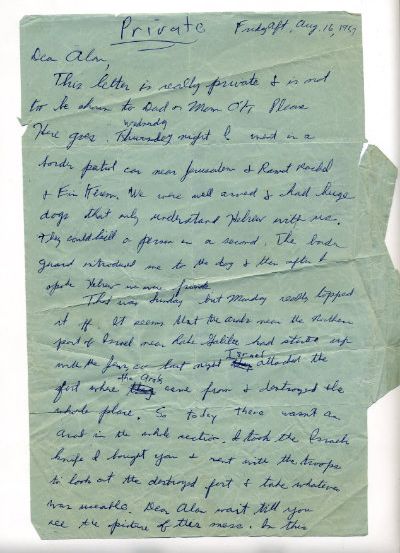 Private
Friday Aft, Aug. 16, 1957
Dear Alan,
This letter is really private & is not
to be shown to Dad or Mom OK, Please
Wednesday
Here goes. Thursday night I went in a
border patrol car near Jerusalem & Ramat Rachel
& Ein Kerem. We were well armed & had huge
dogs that only understand Hebrew with us.
They could kill a person in a second. The border
guard introduced me to the dog & then after I
spoke Hebrew we were friends
That was Sunday but Monday really topped
it off. It seems that the arabs near the Northern
part of Israel near Lake Galilee had started up
Israel
with the Jews, so last night they attacked the
the Arabs
fort where they came from & destroyed the
whole place. So today there wasn't an
arab in the whole section. I took the Israeli
knife I bought you & went with the troops
to look at the destroyed fort & take whatever
was useable. Dear Alan wait till you
see the picture of this mess. In this